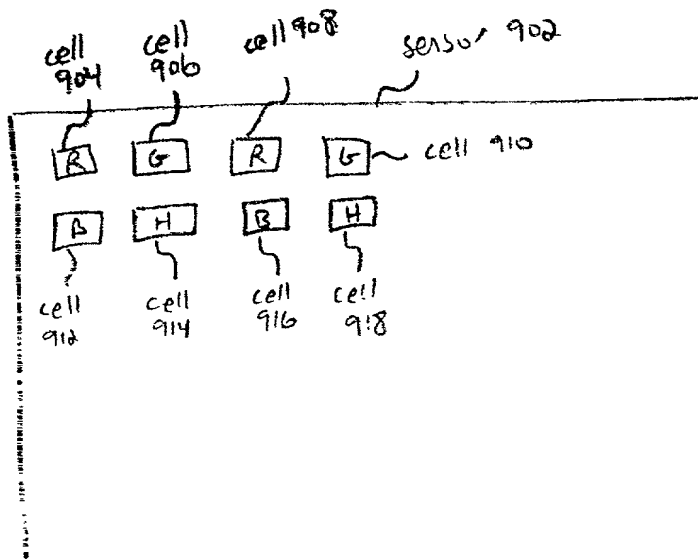 cell 904
cell 906
cell 908
sensor 902
R G R G
cell 910
B H B H
cell 912
cell 914
cell 916
cell 918